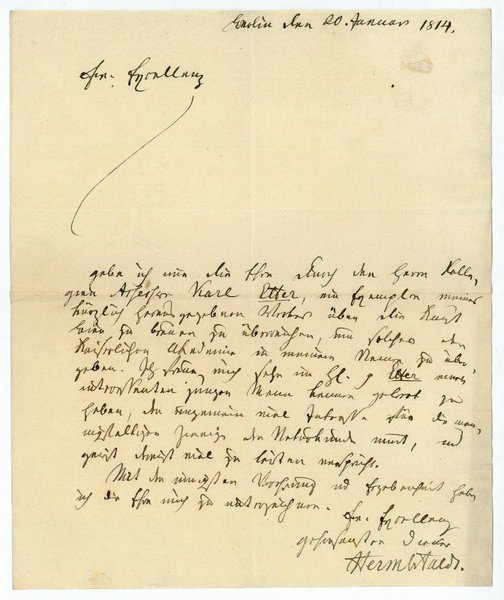 Berlin den 20. Januar 1814.
Sr. Excellenz
gebe ich mir die Ehre durch den Herrn Kolle-
gien Assessor Karl Etter, ein Exemplar meines
kürzlich herausgegebenen Werkes über die Kunst
Bier zu brauen zu überreichen, um solches der
Kaiserlichen Akademie in meinem Namen zu über-
geben. Ich freue mich sehr im H. Etter einen
interessanten jungen Mann kennen gelernt zu
haben, der ungemein viel Interesse für die man-
nigfaltigen Zweige der Naturkunde und
einst viel zu leisten verspricht.
Mit der innigsten Verehrung und Ergebenheit habe
ich die Ehre mich zu unterzeichnen.
Sr. Excellenz
gehorsamster Diener
Hermbstaedt.